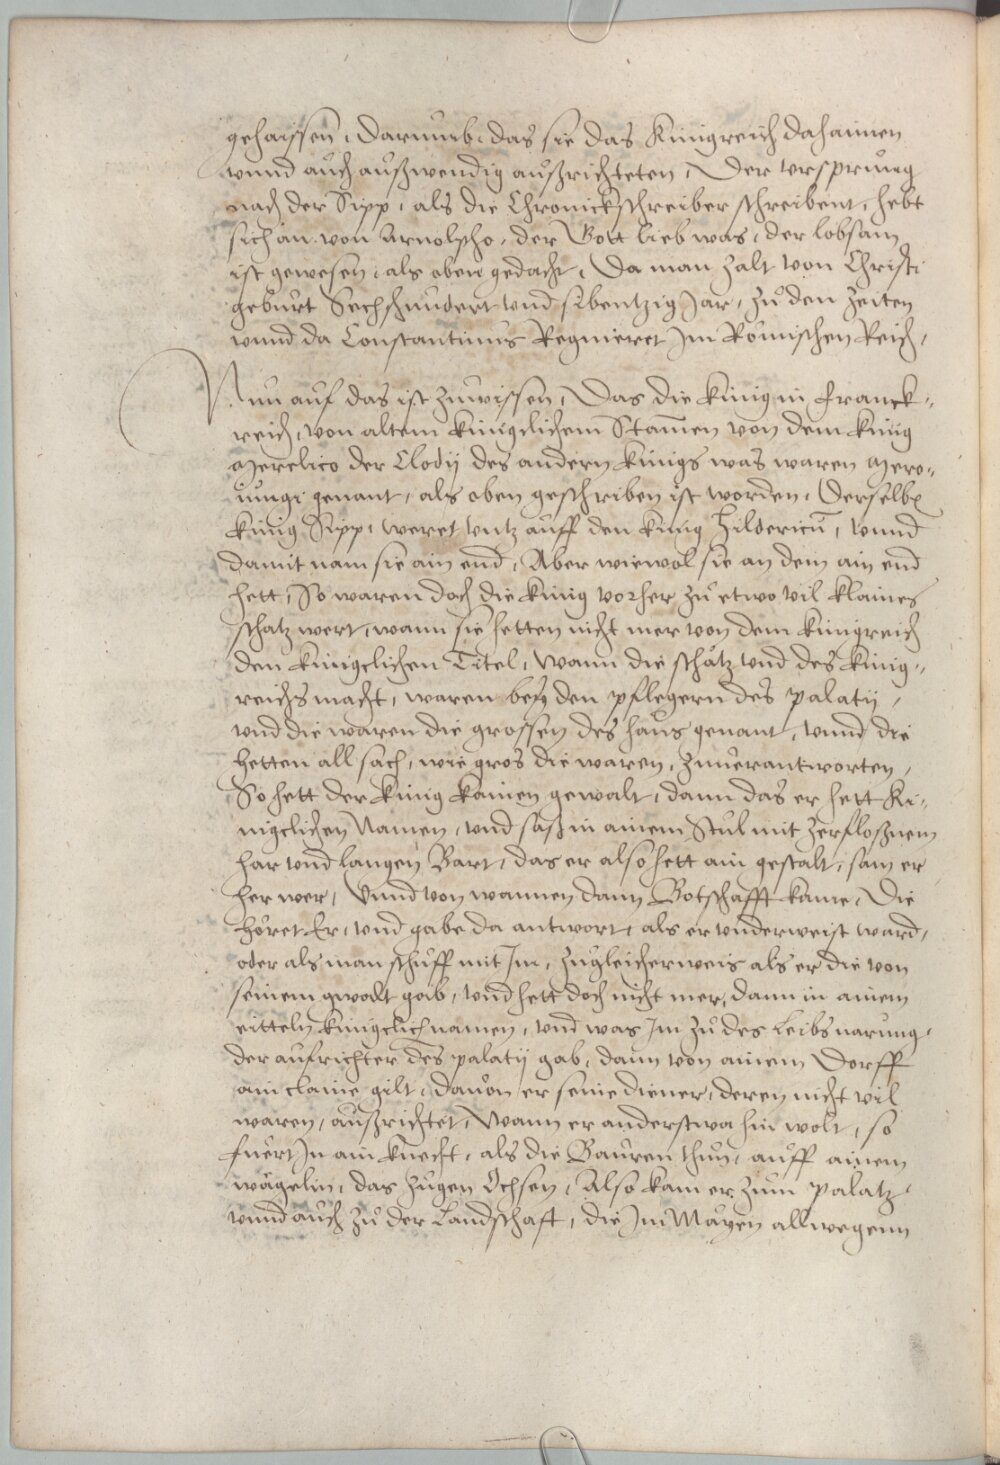 gehaissen, Darumb, das sie das Kunigreich dahaimen
vnnd auch außwendig außrichteten, Der vrsprung
nach der Sipp, als die Chronickschreiber schreibent, hebt
sich an von Arnolpho, der Gott lieb was, der lobsam
ist gewesen, als oben gedacht, Da man zalt von Christi
geburt Sechshundert vnd sibentzig Jar, zu den zeiten
vnnd da Constantinus Regnieret Jm Römischen Reich,
Nun auf das ist zuwissen, Das die kunig in Franck-
reich, von altem kunigclichem Stamen von dem kunig
Merclico der Clodij des andern kunigs was waren Mero-
uungi genant, als oben geschriben ist worden, Derselb
kunig Sipp, weret vntz auff den kunig Hildericum, vnnd
damit nam sie ain end, Aber wiewol sie an dem ain end
hett, So waren doch die kunig vorher zu etwo vil klaines
schatz wert, wann sie hetten nicht mer von dem kunigreich
den kunigclichen Titel, Wann die schätz vnd des kunig-
reichs macht, waren bey den pflegern des palatij,
vnd die waren die grossen des haus genant, vnnd die
hetten all sach, wie gros die waren, zuuerantworten,
So hett der kunig kainen gewalt, dann das er hett Ku-
nigclichen Namen, vnd saß in ainem Stul mit zerfloßnem
har vnd langen Bart, das er also hett ain gestalt, sam er
her wer, Vnnd von wannen dann Botschafft kame, Die
höret Er, vnd gabe da antwort, als er vnderweist ward,
oder als man schuff mit Jm, zugleicherweis als er die von
seinem gwalt gab, vnd hett doch nicht mer, dann in ainem
eitteln kunigclich namen, vnd was Jm zu des Leibs narung
der aufrichter des palatij gab, dann von ainem Dorff
ain claine gilt, dauon er seine diener, deren nicht vil
waren, außrichtet, Wann er anderstwa hin wolt, so
fuert Jn ain knecht, als die Bauren thun, auff ainem
wägelin, das zugen Ochsen, Also kam er zum palatz,
vnnd auch zu der Landschaft, die Jm Mayen allwegenn